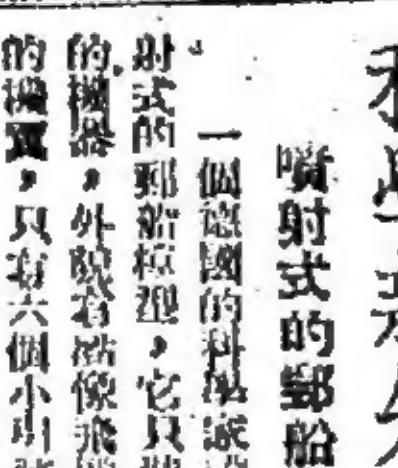 噴射式的郵船
一個德國的科學家
射式的郵船模型，它只
的機器，外貌有點像飛
的機翼，只有六個小引